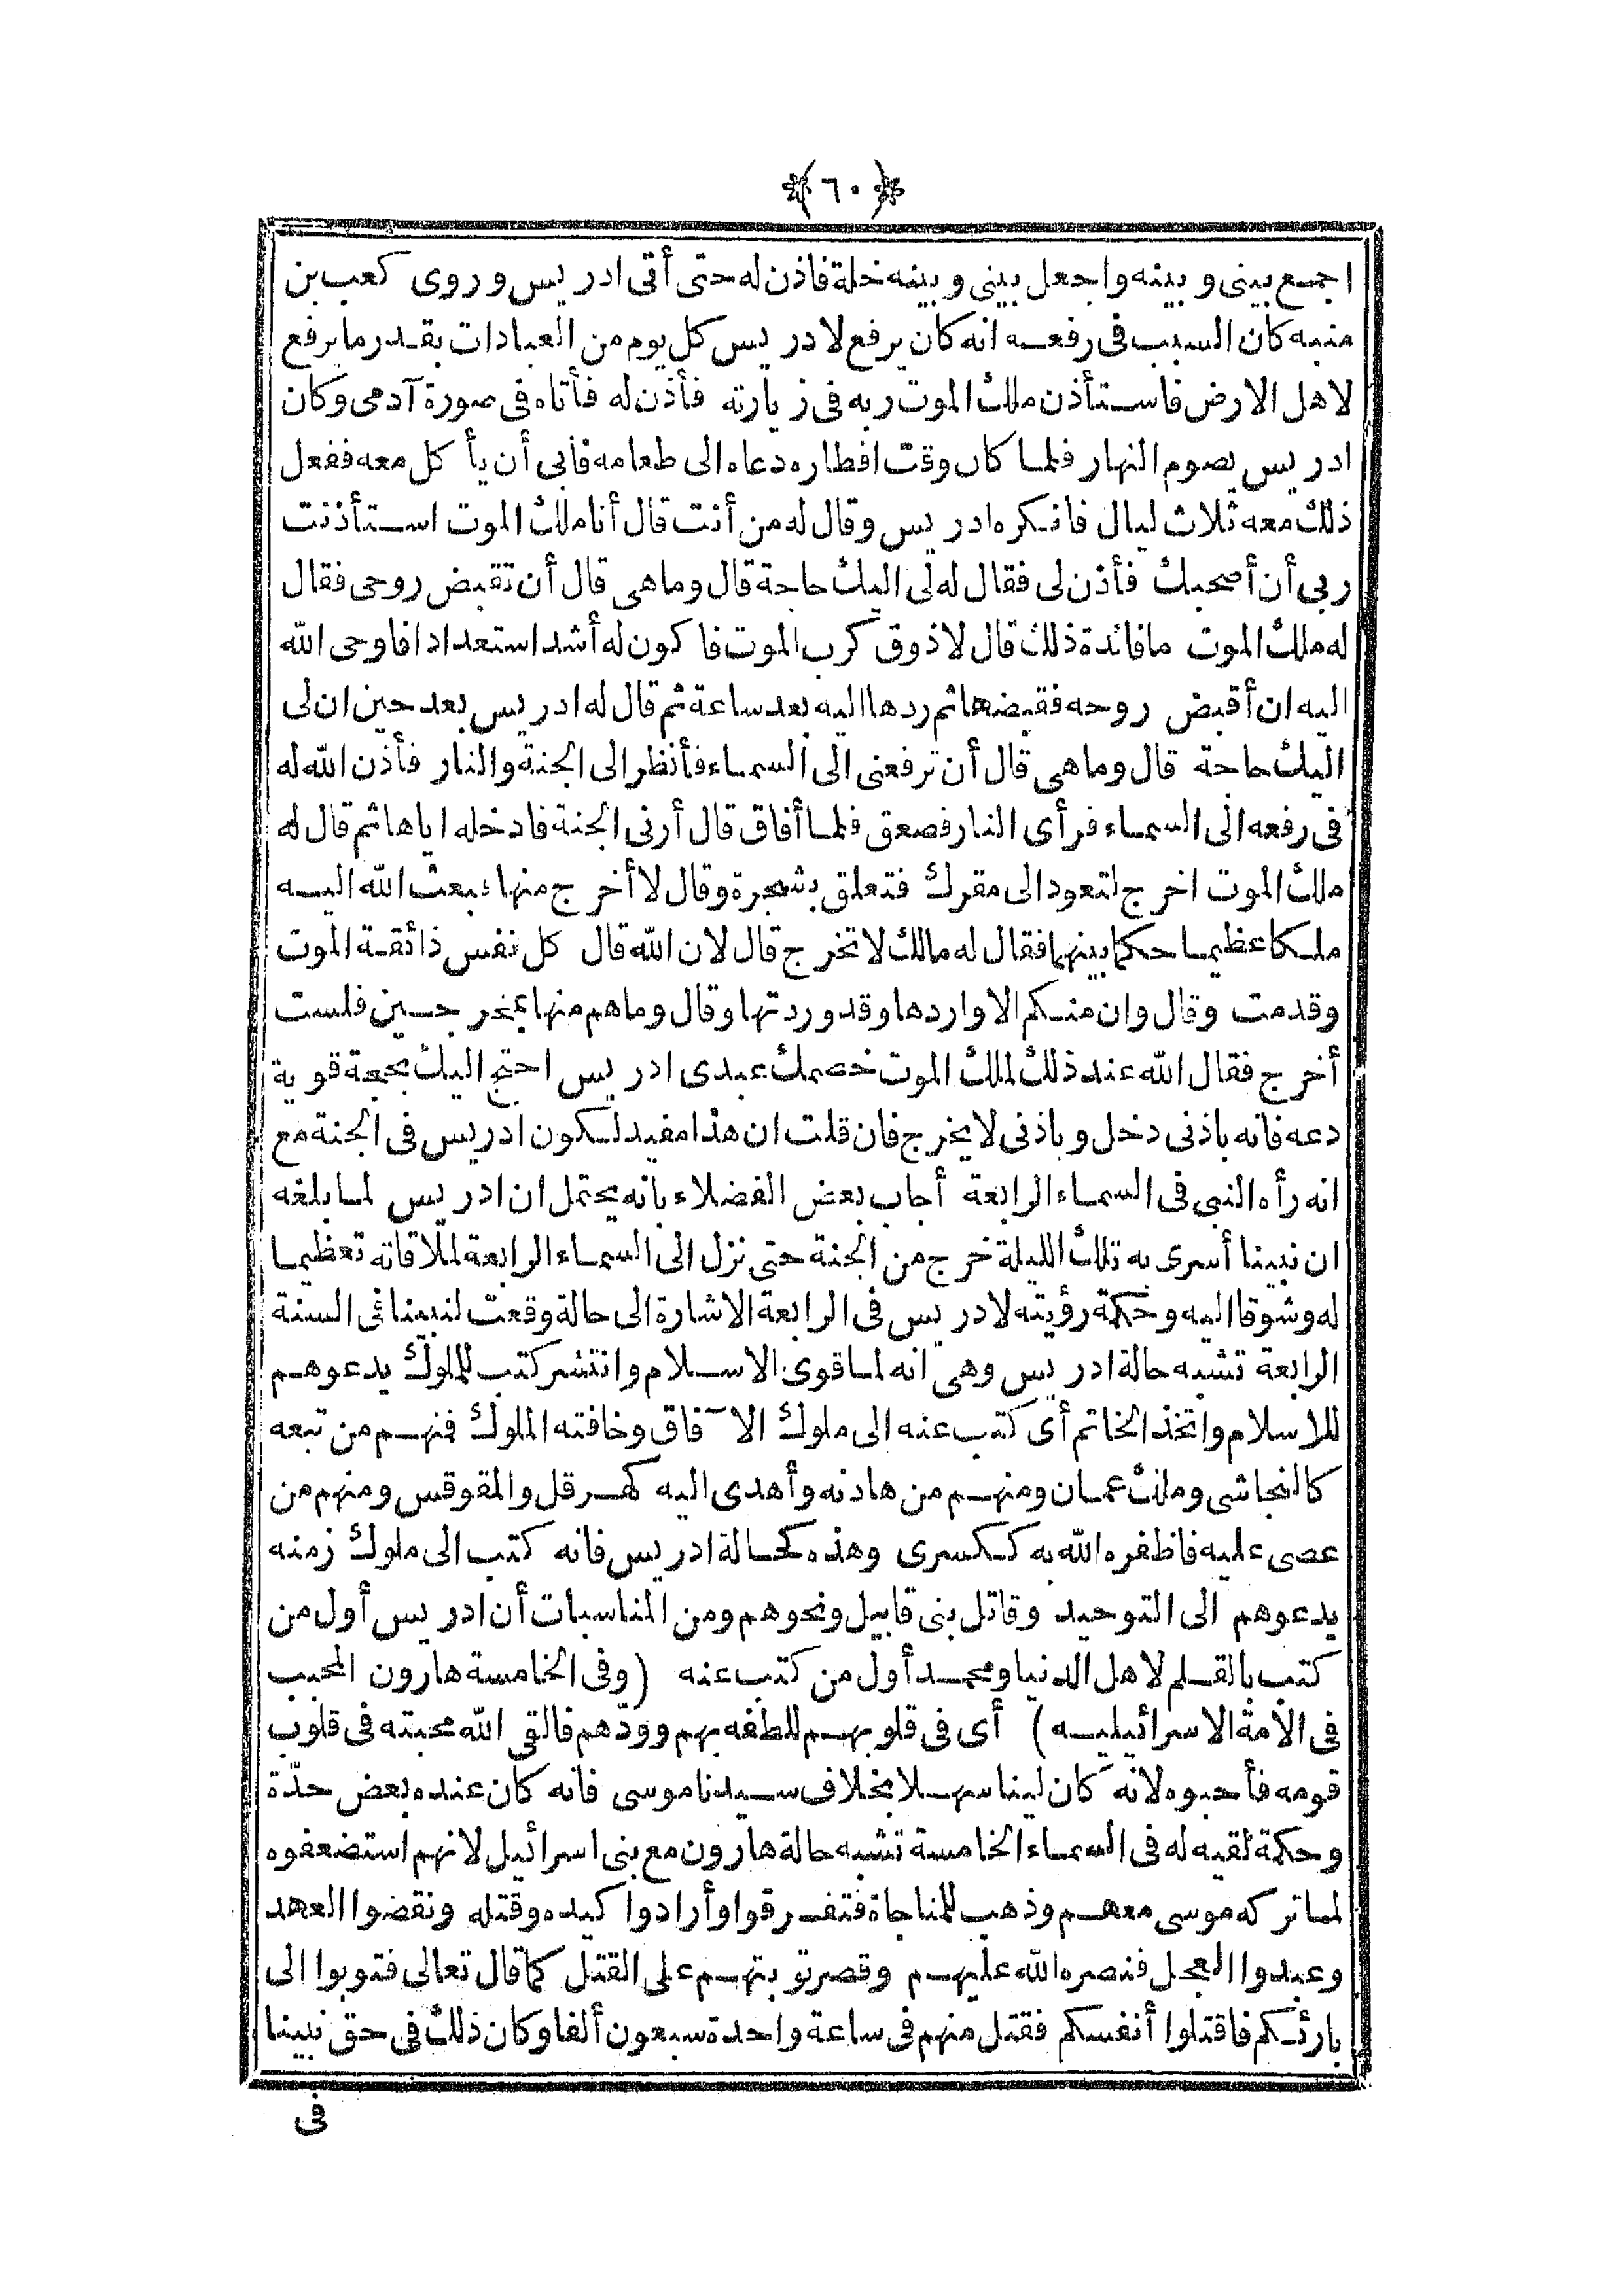 ﴿٦٠﴾
اجمع بيني و بينه واجعل بيني و بينه خلة فاذن له حتى أتى ادريس وروى كعب بن
منبه كان السبب في رفعه انه كان يرفع لادريس كل يوم من العبادات بقدر ما يرفع
لاهل الارض فاستأذن ملك الموت ربه في زيارته فأذن له فأتاه في صورة آدمى وكان
ادريس يصوم النهار فلما كان وقت افطاره دعاه الى طعامه فأبى أن يأكل معه ففعل
ذلك معه ثلاث ليال فانكره ادريس وقال له من أنت قال أنا ملك الموت استأذنت
ربى أن أصحبك فأذن لى فقال له لى اليك حاجة قال وماهى قال أن تقبض روحى فقال
له ملك الموت ما فائدة ذلك قال لاذوق كرب الموت فا كون له أشد استعدادا فاوحى الله
اليه ان أقبض روحه فقبضها ثم ردها اليه بعد ساعة ثم قال له ادريس بعد حين ان لى
اليك حاجة قال وماهى قال أن ترفعنى الى السماء فأنظر الى الجنة والنار فأذن الله له
فى رفعه الى السماء فرأى النار فصعق فلما أفاق قال أرنى الجنة فادخله اياها ثم قال له
ملك الموت اخرج لتعود الى مقرك فتعلق بشجرة وقال لا أخرج منها فبعث الله اليه
ملكا عظيما حكما بينهما فقال له مالك لا تخرج قال لان الله قال كل نفس ذائقة الموت
وقدمت وقال وان منكم الا واردها وقد وردتها وقال وماهم منها بمخرجين فلست
أخرج فقال الله عند ذلك لملك الموت خصمك عبدى ادريس احتج اليك بحجة قوية
دعه فانه باذنى دخل و باذنى لا يخرج فان قلت ان هذا مفيد لكون ادريس فى الجنة مع
انه رأه النبى فى السماء الرابعة أجاب بعض الفضلاء بانه يحتمل ان ادريس لما بلغه
ان نبينا أسرى به تلك الليلة خرج من الجنة حتى نزل الى السماء الرابعة لملاقاته تعظيما
له وشوقا اليه وحكمة رؤيته لادريس فى الرابعة الاشارة الى حالة وقعت لنبينا فى السنة
الرابعة تشبه حالة ادريس وهى انه لما قوى الاسلام وانتشر كتب للملوك يدعوهم
للاسلام واتخذ الخاتم أى كتب عنه الى ملوك الآفاق وخافته الملوك فمنهم من تبعه
كالنجاشى وملك عمان ومنهم من هادنه وأهدى اليه كهرقل والمقوقس ومنهم من
عصى عليه فاظفره الله به ككسرى وهذه كحالة ادريس فانه كتب الى ملوك زمنه
يدعوهم الى التوحيد وقاتل بنى قابيل ونحوهم ومن المناسبات أن ادريس أول من
كتب بالقلم لاهل الدنيا ومحمد أول من كتب عنه (وفى الخامسة هارون المحبب
فى الأمة الاسرائيليه) أى فى قلوبهم للطفه بهم وودّهم فالقى الله محبته فى قلوب
قومه فأحبوه لانه كان لينا سهلا بخلاف سيدنا موسى فانه كان عنده بعض حدّة
وحكمة لقيه له فى السماء الخامسة تشبه حالة هارون مع بنى اسرائيل لانهم استضعفوه
لما تركه موسى معهم وذهب للمناجاة فتفرقوا وأرادوا كيده وقتله ونقضوا العهد
وعبدوا العجل فنصره الله عليهم وقصر توبتهم على القتل كما قال تعالى فتوبوا الى
بارئكم فاقتلوا أنفسكم فقتل منهم فى ساعة واحدة سبعون ألفا وكان ذلك فى حق نبينا
فى